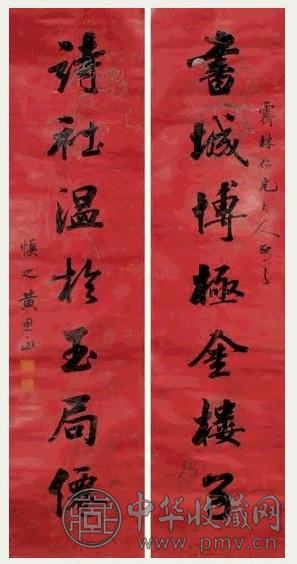 霽林仁兄大人正之
書城博極金樓子
詩社温於玉局僊
慎之黃思永
中华收藏网
www.pmv.cn